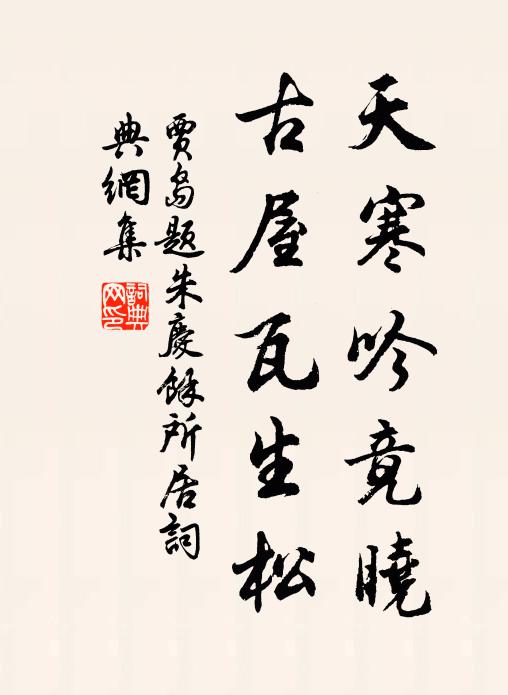 天寒吟竟曉
古屋瓦生松
賈島題朱慶餘所居詞
典網集
詞典網印